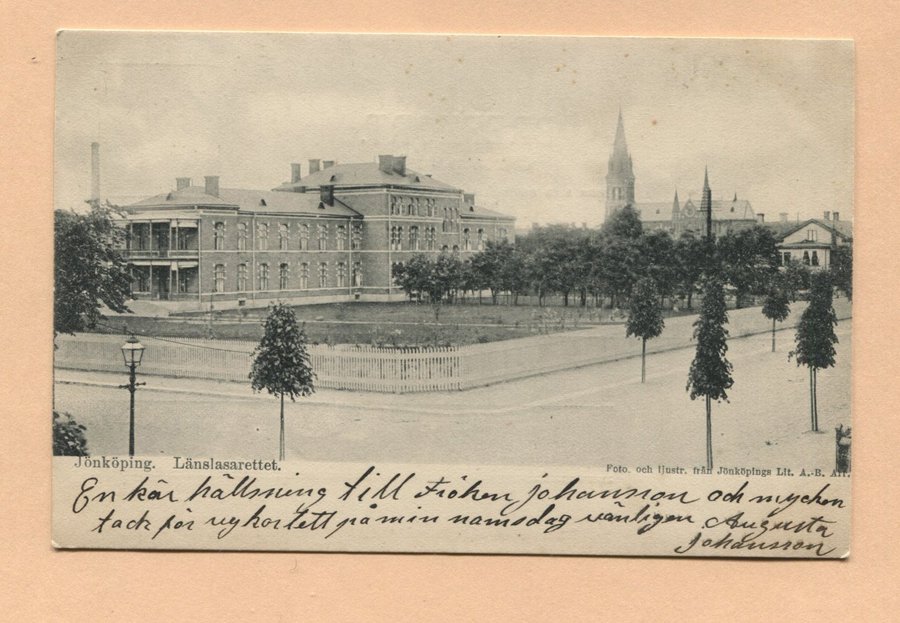 Jönköping. Länslasarettet.
Foto. och ljustr. från Jönköpings Lit. A.-B. Aft.
En kär hällsning till Fröken johansson och mycken
tack för vykortett på min namsdag vänligen Augusta
Johansson